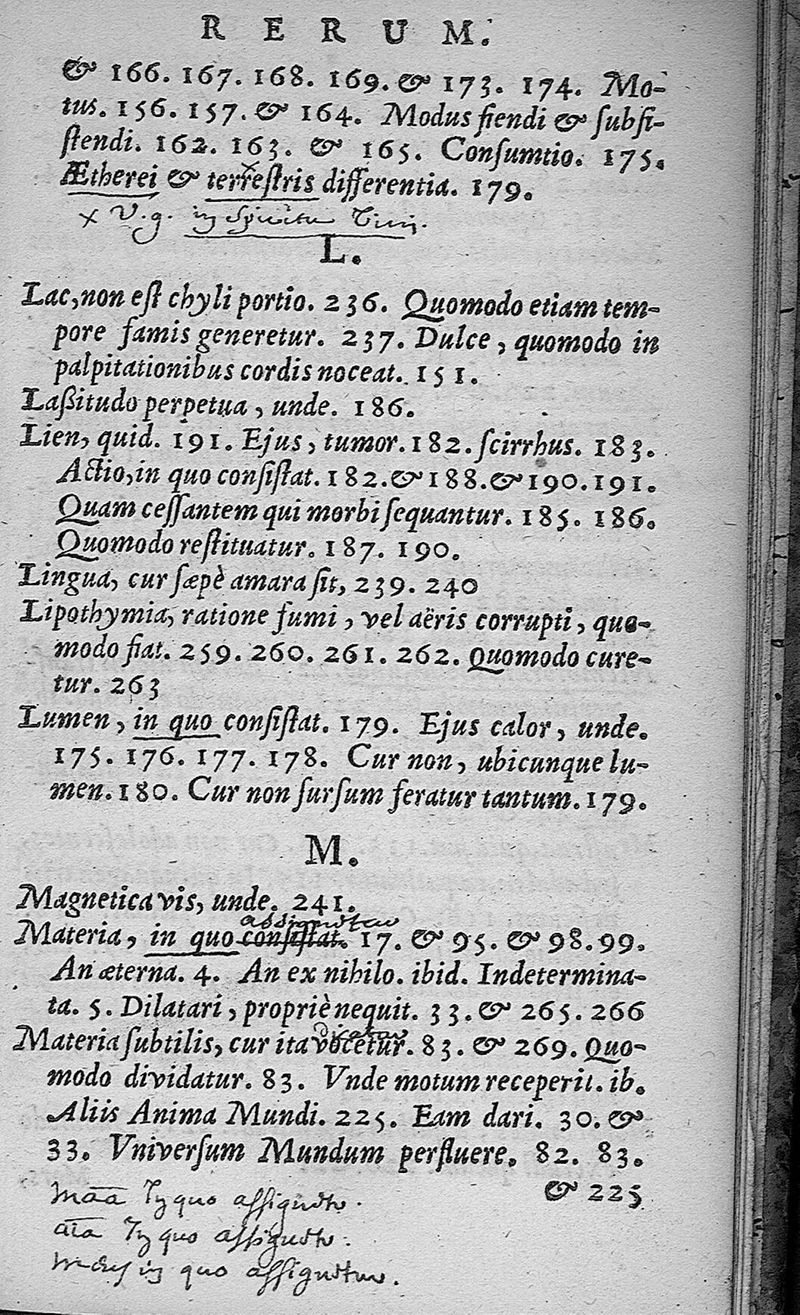 RERUM.
& 166. 167. 168. 169. & 173. 174. Mo-
tus. 156. 157. & 164. Modus fiendi & ſubſi-
ſtendi. 162. 163. & 165. Conſumtio. 175.
Ætherei & terreſtris differentia. 179.
x V.g. in spiritu Vini.
L.
Lac, non eſt chyli portio. 236. Quomodo etiam tem-
pore famis generetur. 237. Dulce, quomodo in
palpitationibus cordis noceat. 151.
Laßitudo perpetua, unde. 186.
Lien, quid. 191. Ejus, tumor. 182. ſcirrhus. 183.
Actio, in quo conſiſtat. 182. & 188. & 190. 191.
Quam ceſſantem qui morbi ſequantur. 185. 186.
Quomodo reſtituatur. 187. 190.
Lingua, cur ſæpè amara ſit, 239. 240
Lipothymia, ratione fumi, vel aëris corrupti, quo-
modo fiat. 259. 260. 261. 262. Quomodo cure-
tur. 263
Lumen, in quo conſiſtat. 179. Ejus calor, unde.
175. 176. 177. 178. Cur non, ubicunque lu-
men. 180. Cur non ſurſum feratur tantum. 179.
M.
Magnetica vis, unde. 241.
assignatur
Materia, in quo conſiſtat. 17. & 95. & 98. 99.
An æterna. 4. An ex nihilo. ibid. Indetermina-
ta. 5. Dilatari, propriè nequit. 33. & 265. 266
Materia ſubtilis, cur ita vocetur. 83. & 269. Quo-
modo dividatur. 83. Vnde motum receperit. ib.
Aliis Anima Mundi. 225. Eam dari. 30. &
33. Vniverſum Mundum perfluere. 82. 83.
& 225
in quo assignatur.
in quo assignatur.
in quo assignatur.